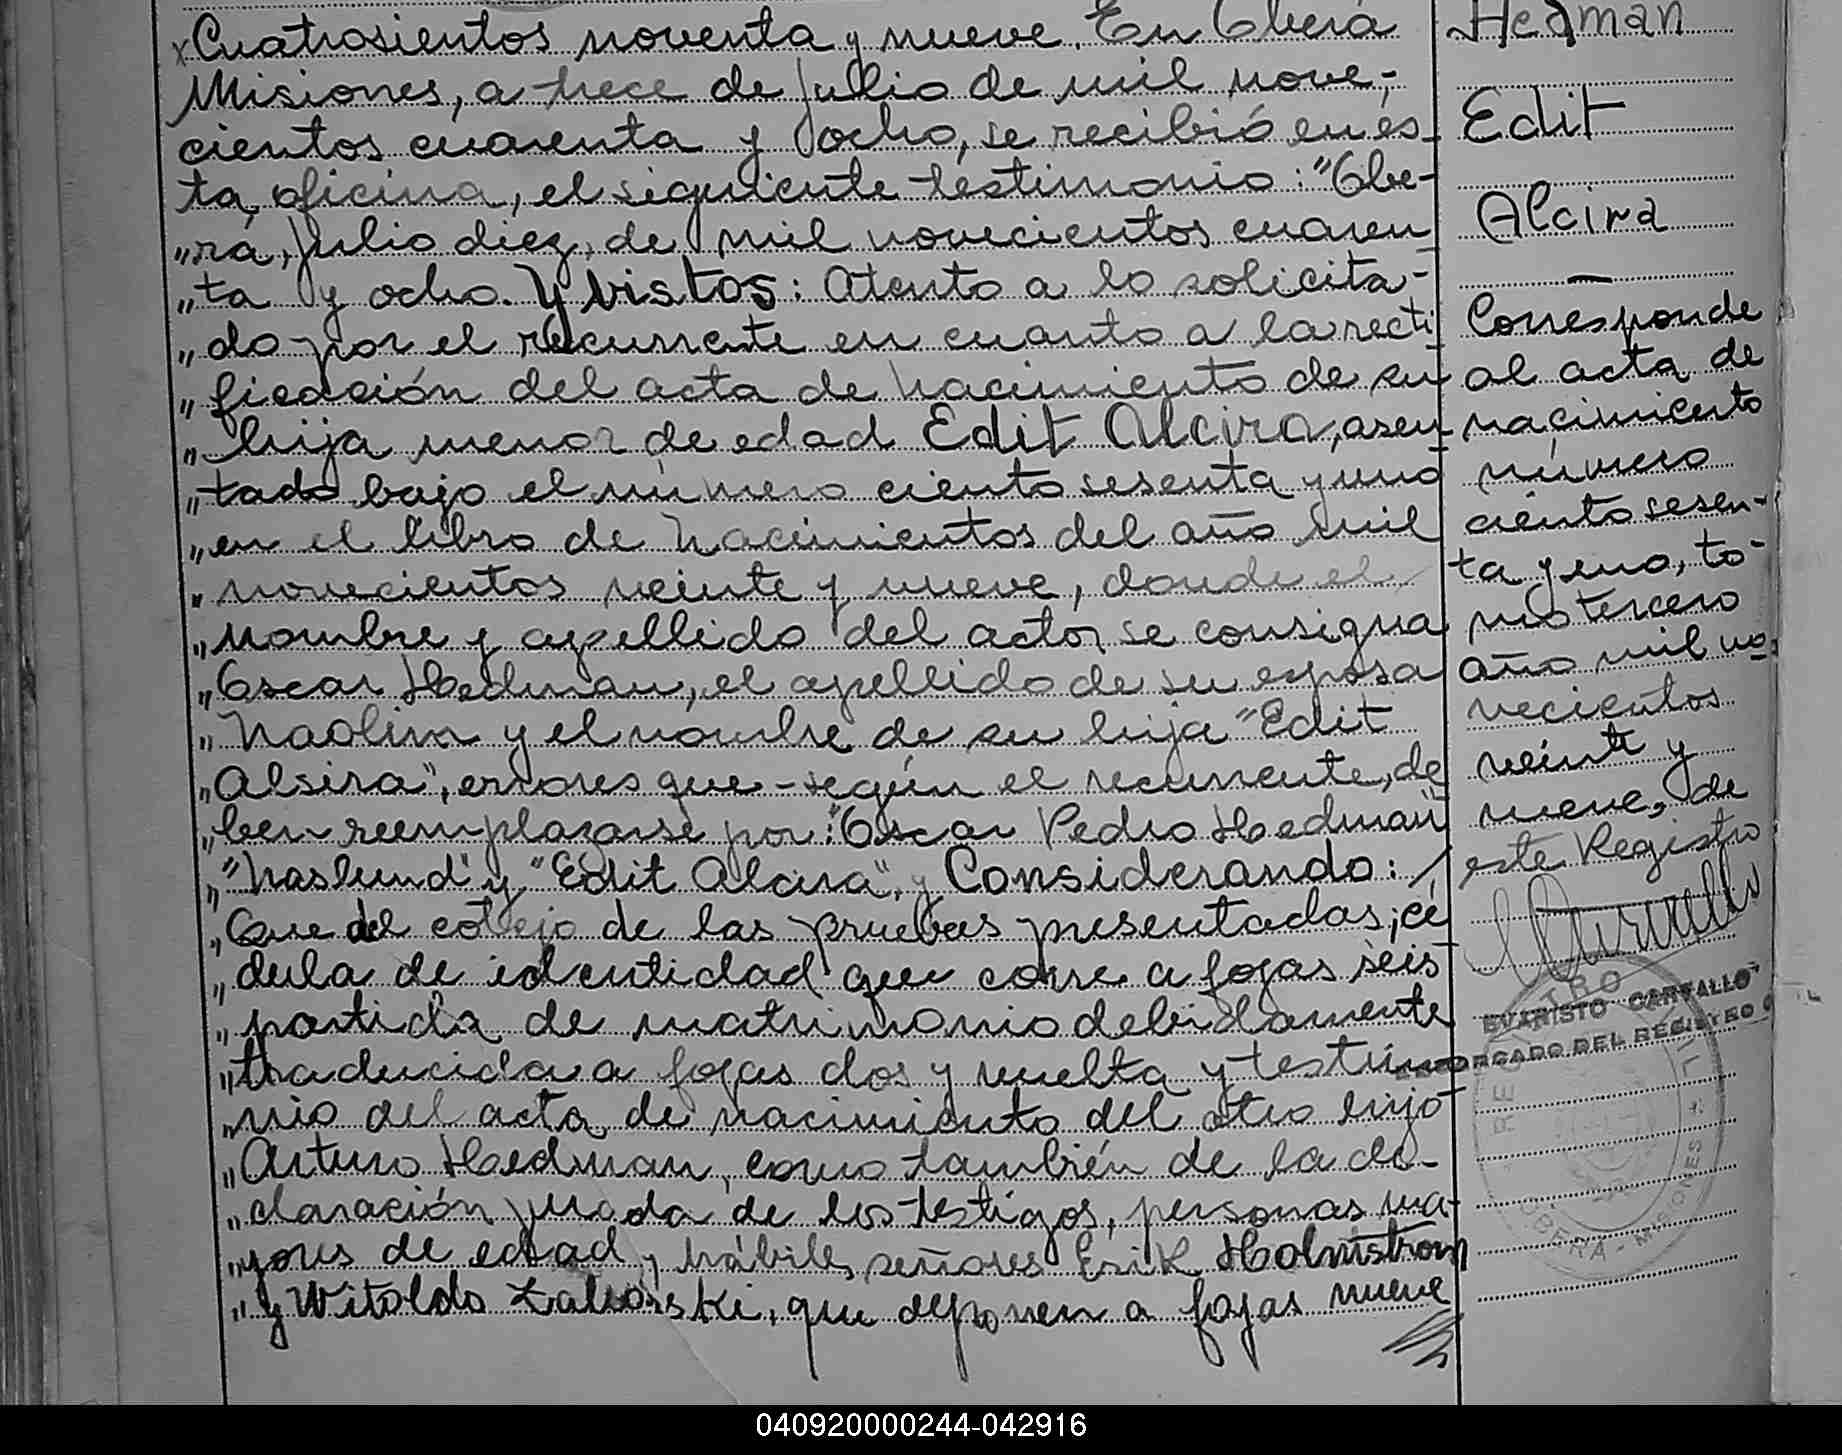 Cuatrosientos noventa y nueve. En Oberá
Misiones, a trece de julio de mil nove-
cientos cuarenta y ocho, se recibió en és-
ta oficina, el siguiente testimonio: "Obe-
"rá, julio diez, de mil novecientos cuaren
"ta y ocho. Y vistos: Atento a lo solicita-
"do por el recurrente en cuanto a la recti
"ficación del acta de nacimiento de su
"hija menor de edad Edit Alcira, asen
"tado bajo el número ciento sesenta y uno
"en el libro de nacimientos del año mil
"novecientos veinte y nueve, donde el
"nombre y apellido del actor se consigna
"Oscar Hedman, el apellido de su esposa
"Naolin y el nombre de su hija "Edit
"Alsira", errores que -según el recurrente, de
"ben reemplazarse por: "Oscar Pedro Hedman"
""Naslund" y "Edit Alcira", y Considerando: /
"Que del cotejo de las pruebas presentadas; cé
"dula de identidad que corre a fojas seis
"partida de matrimonio debidamente
"traducida a fojas dos y vuelta y testimo
"nio del acta de nacimiento del otro hijo
"Arturo Hedman, como también de la de-
"claración jurada de los testigos, personas ma-
"yores de edad y hábiles señores Erik Holmstrom
"y Witoldo, que deponen a fojas nueve
Hedman
Edit
Alcira
Corresponde
al acta de
nacimiento
número
ciento sesen-
ta y uno, to-
mo tercero
año mil no-
vecientos
veinte y
nueve, de
este Registro
EVARISTO CARVALLO
ENCARGADO DEL REGISTRO C
REGISTRO CIVIL
OBERÁ - MISIONES
040920000244-042916